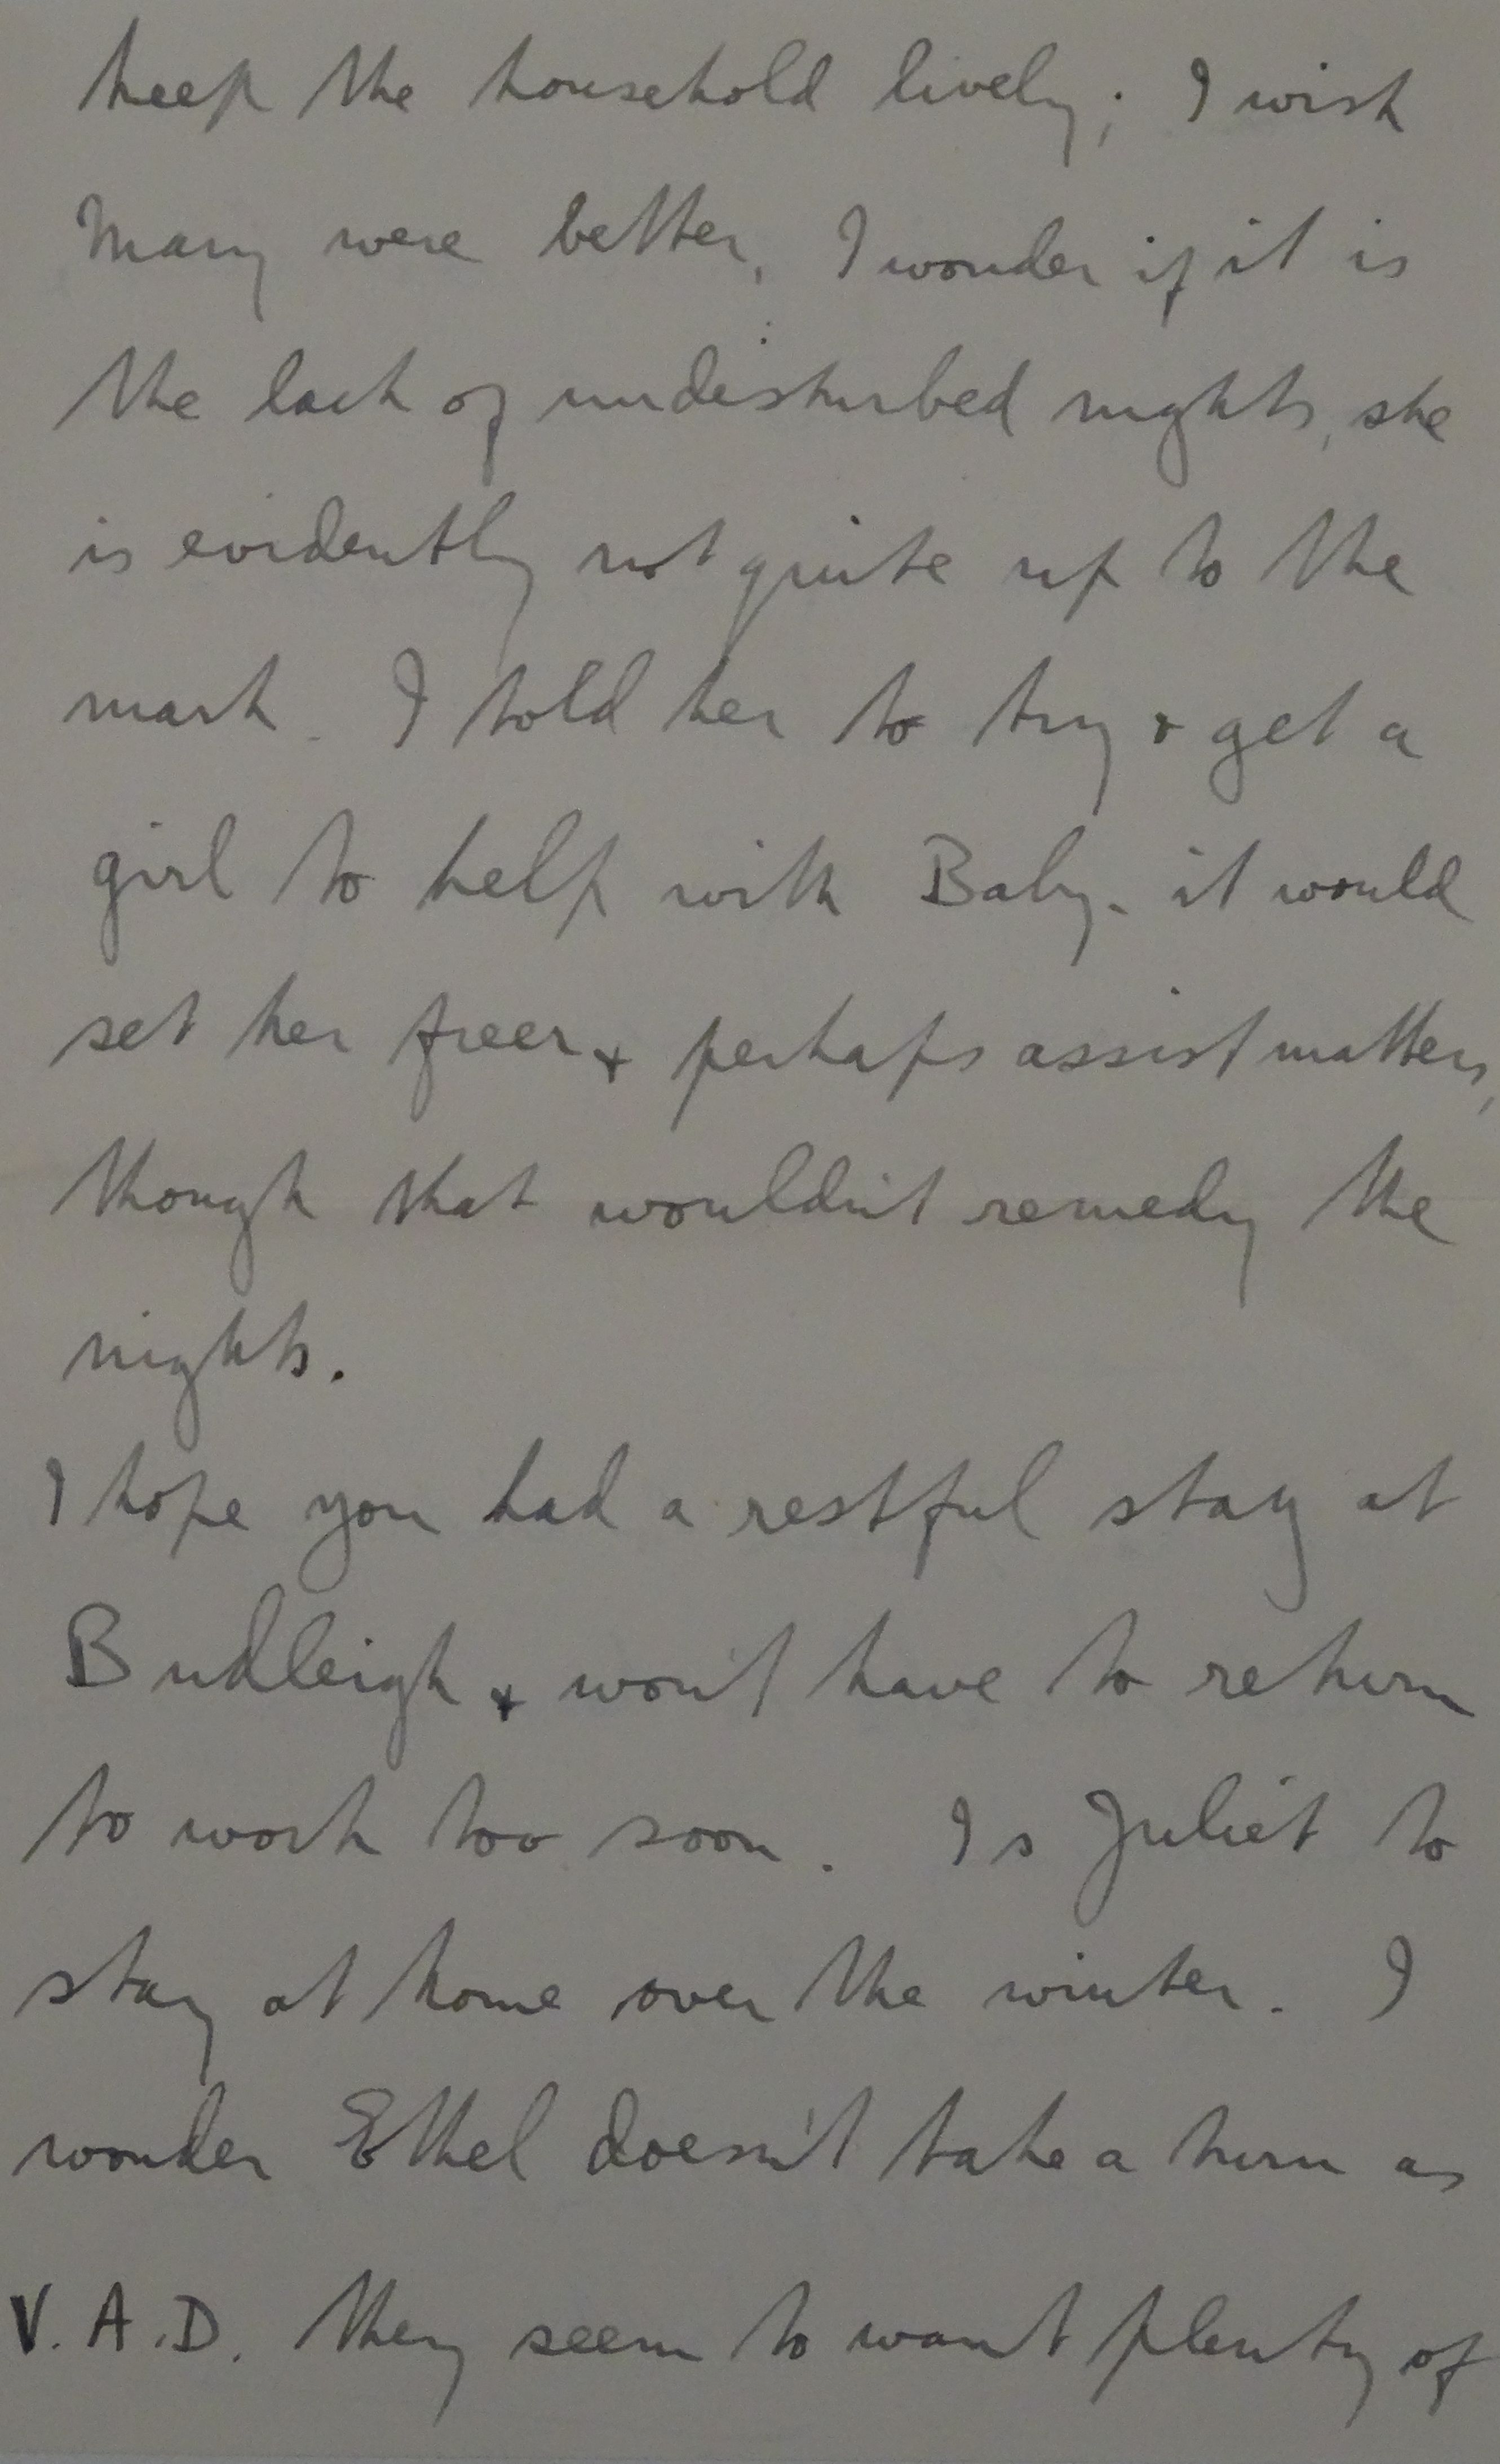 keep the household lively; I wish
Mary were better, I wonder if it is
the lack of undisturbed nights, she
is evidently not quite up to the
mark. I told her to try + get a
girl to help with Baby. it would
set her freer + perhaps assist matters,
though that wouldn't remedy the
nights.
I hope you had a restful stay at
Budleigh + won't have to return
to work too soon. Is Juliet to
stay at home over the winter. I
wonder Ethel doesn't take a turn as
V.A.D. they seem to want plenty of